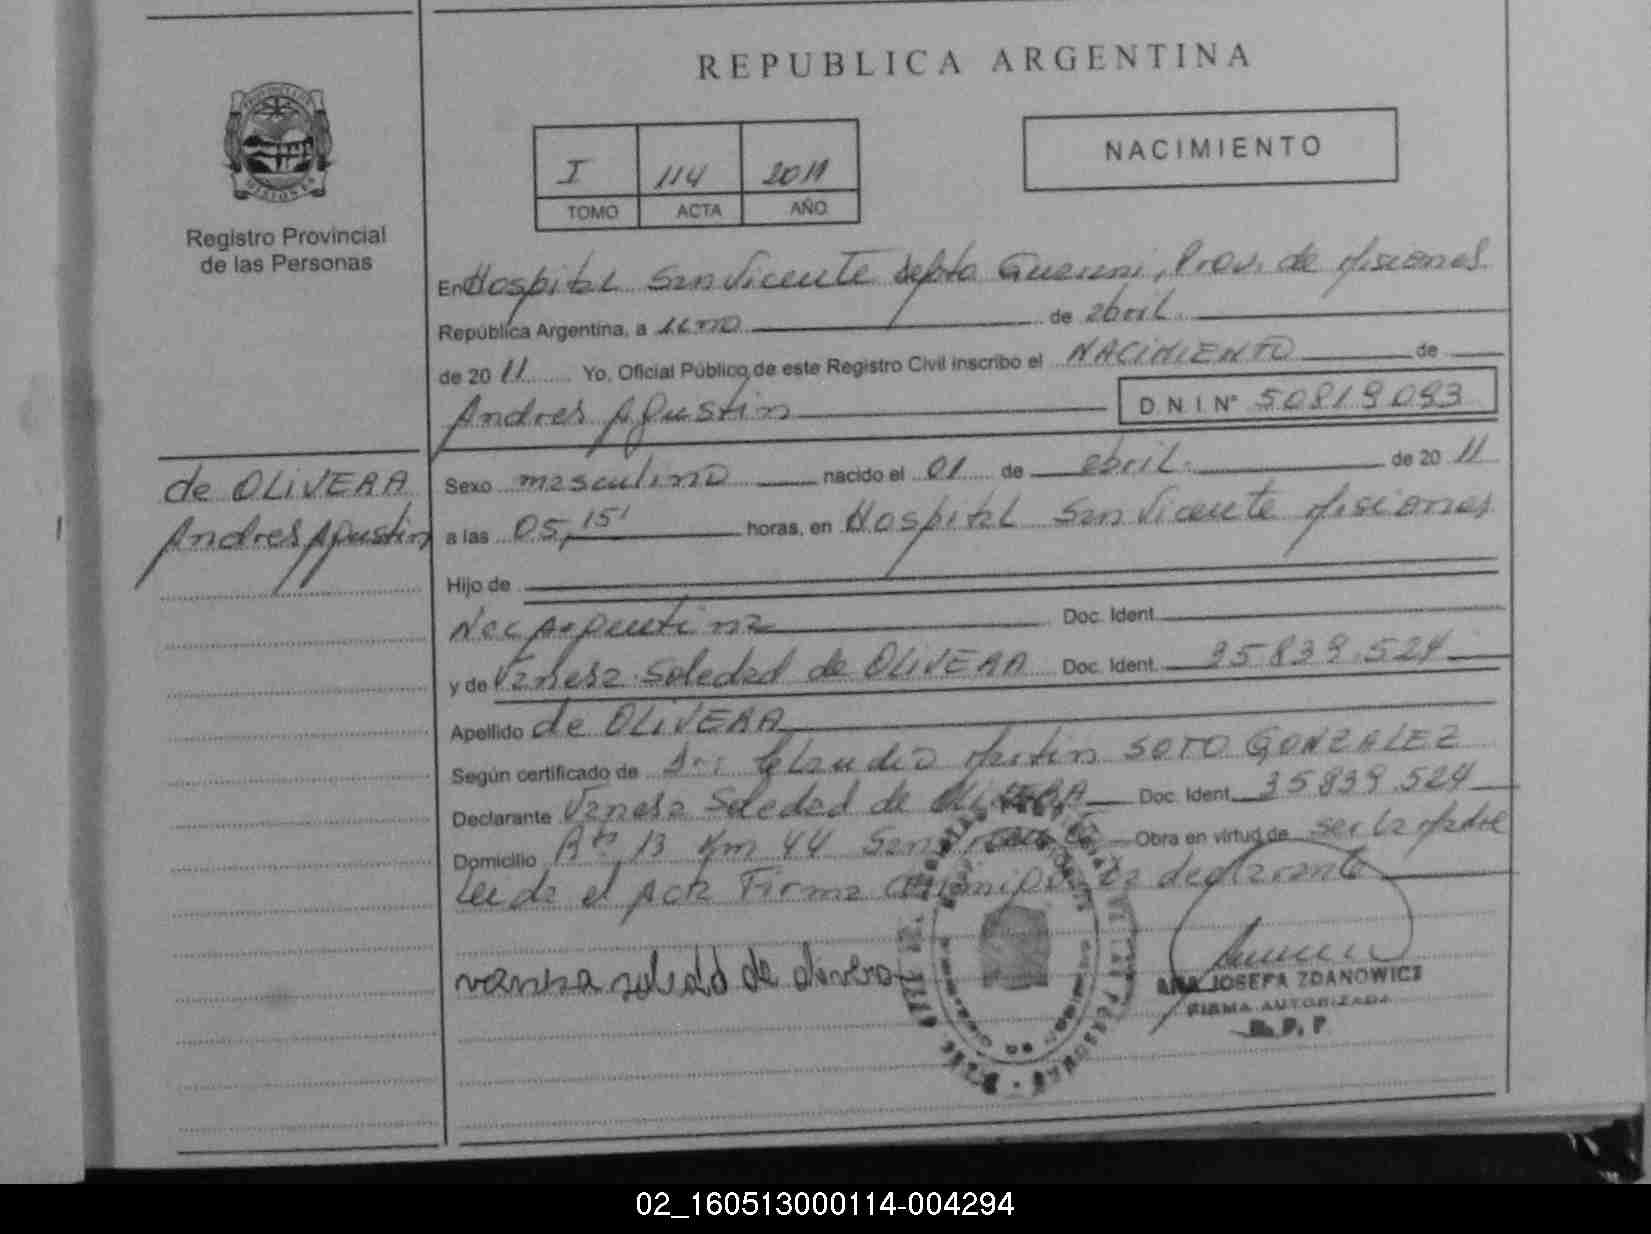 REPUBLICA ARGENTINA
PROVINCIA DE
MISIONES
Registro Provincial
de las Personas
I 114 2011
TOMO ACTA AÑO
NACIMIENTO
En Hospital San Vicente depto Guarani, Prov. de Misiones
República Argentina, a uno de abril
de 20 11 Yo, Oficial Público de este Registro Civil inscribo el NACIMIENTO de
Andres Agustin D.N.I. N°
de OLIVERA
Andres Agustin
Sexo masculino nacido el 01 de abril. de 20 11
a las 05,15' horas, en Hospital San Vicente Misiones
Hijo de
Nac Argentina Doc. Ident.
y de Vanesa Soledad de OLIVERA Doc. Ident. 35839.524
Apellido de OLIVERA
Según certificado de Dr: Claudio Martin SOTO GONZALEZ
Declarante Vanesa Soledad de OLIVERA Doc. Ident. 35839.524
Domicilio Rta 13 Km 44 San Vicente Obra en virtud de ser la Madre
Leida el Acta Firma conmigo la declarante
vanesa soledad de olivera
ANA JOSEFA ZDANOWICZ
FIRMA AUTORIZADA
R. P. P.
02_160513000114-004294